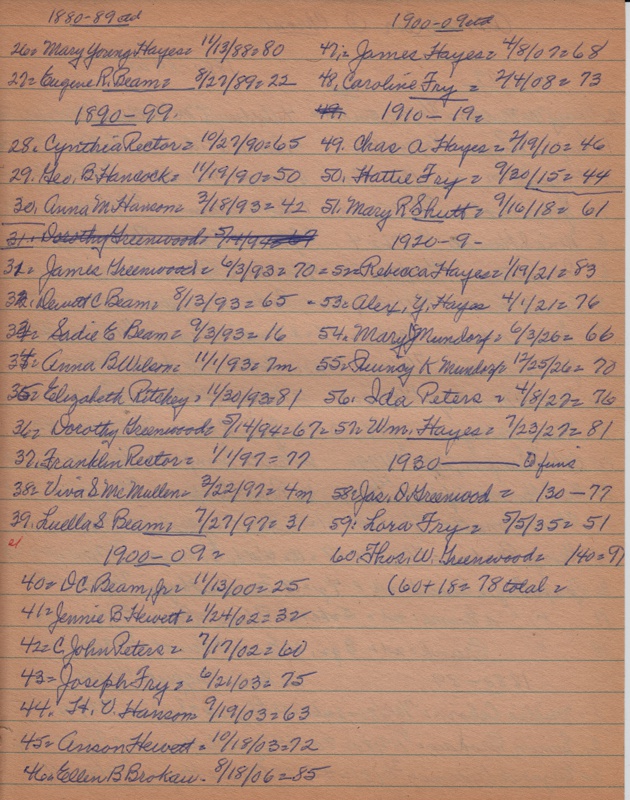 1880-89 ctd
26= Mary Young Hayes= 11/13/88=80
27= Eugene R. Beam= 8/27/89=22
1890-99.
28. Cynthia Rector= 10/27/90=65
29. Geo. B Hancock= 11/19/90=50
30. Anna M Hanson= 3/18/93=42
31. Dorothy Greenwood= 5/14/94=67
31= James Greenwood= 6/3/93=70=
32. Dewitt C Beam= 8/13/93=65
33= Sadie E Beam= 9/3/93=16
34= Anna B Wilson= 11/1/93=7m
35= Elizabeth Ritchey= 11/30/93=81
36= Dorothy Greenwood= 5/14/94=67=
37. Franklin Rector= 1/1/97=77
38= Viva S McMullen= 3/22/97=4m
39. Luella S Beam= 7/27/97=31
21
1900-09=
40= DC Beam, Jr= 11/13/00=25
41= Jennie B Hewett= 1/24/02=32
42= C. John Peters= 7/17/02=60
43= Joseph Fry= 6/21/03=75
44. H. V. Hanson= 9/19/03=63
45= Anson Hewett= 10/18/03=72
46= Ellen B Brokaw- 8/18/06=85
1900-09 ctd
47;= James Hayes= 4/8/07=68
48, Caroline Fry= 2/4/08=73
49. 1910-19=
49. Chas A Hayes= 2/19/10=46
50. Hattie Fry= 9/30/15=44
51. Mary R Shutt= 9/16/18= 61
1920-9-
52=Rebecca Hayes=1/19/21=83
53= Alex. Y. Hayes 4/1/21=76
54. Mary Mundorf= 6/3/26=66
55= Quincy K Mundorf= 12/25/26=70
56. Ida Peters= 4/8/27=76
57= Wm. Hayes= 7/23/27=81
1930 finis
58= Jas. D. Greenwood= 130-77
59: Lora Fry= 5/5/35=51
60. Thos. W. Greenwood= 140=
(60+18=78 total=